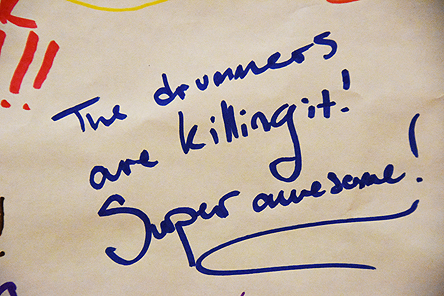 The drummers
are killing it!
Super awesome!